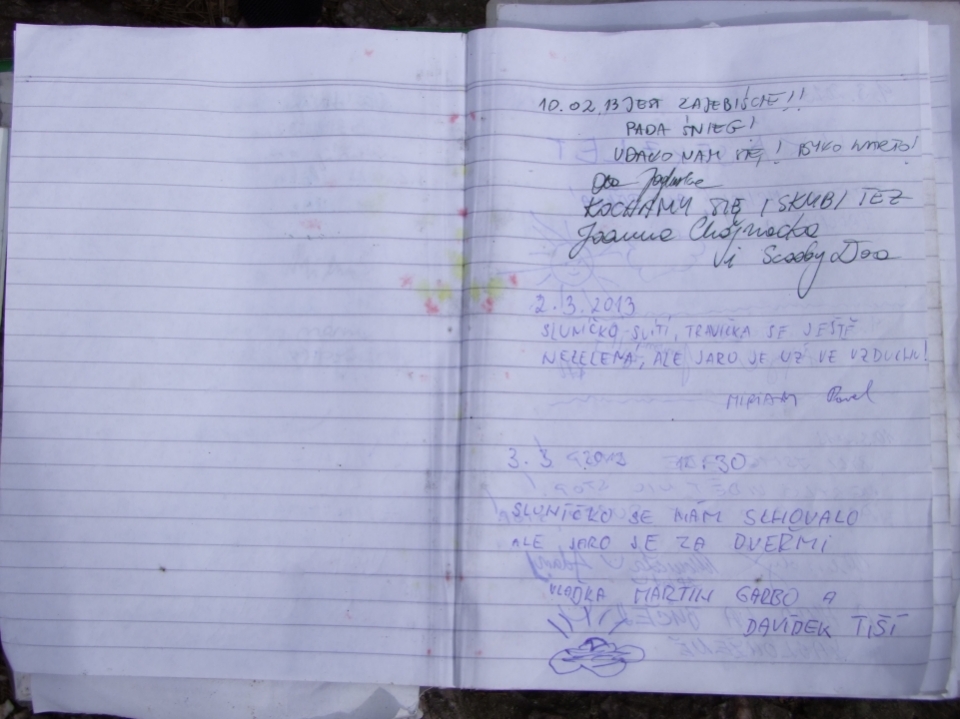 10.02.13 JEST ZAJEBIŚCIE!!
PADA ŚNIEG!
UDAŁO NAM SIĘ! BYŁO WARTO!
KOCHAMY SIĘ I SKUBI TEŻ
Joanna Chojnacka
i Scooby Doo
2.3.2013
SLUNÍČKO SVÍTÍ, TRAVIČKA SE JEŠTĚ
NEZELENÁ, ALE JARO JE UŽ VE VZDUCHU!
MIRIAM Pavel
3.3 2013
SLUNÍČKO SE NÁM SCHOVALO
ALE JARO JE ZA DVEŘMI
VLADKA MARTIN GARBO A
DAVÍDEK TIŠÍ